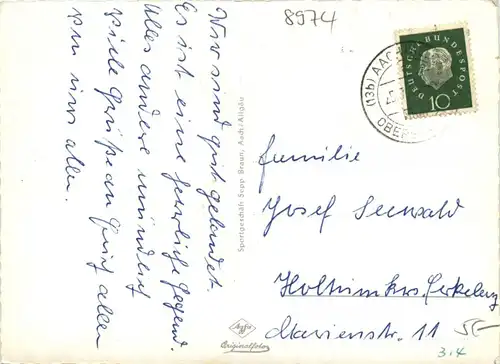 8974
Wir sind gut gelandet.
Es ist eine herrliche Gegend.
Alles andere mündlich
viele Grüße an Euch allen
von uns allen.
Sportgeschäft Sepp Braun, Aach/Allgäu
Agfa
Originalfoto
DEUTSCHE BUNDESPOST
10
(13b) AACH
OBER
Familie
Josef Seewald
Holtum krs. Erkelenz
Marienstr. 11
3.4